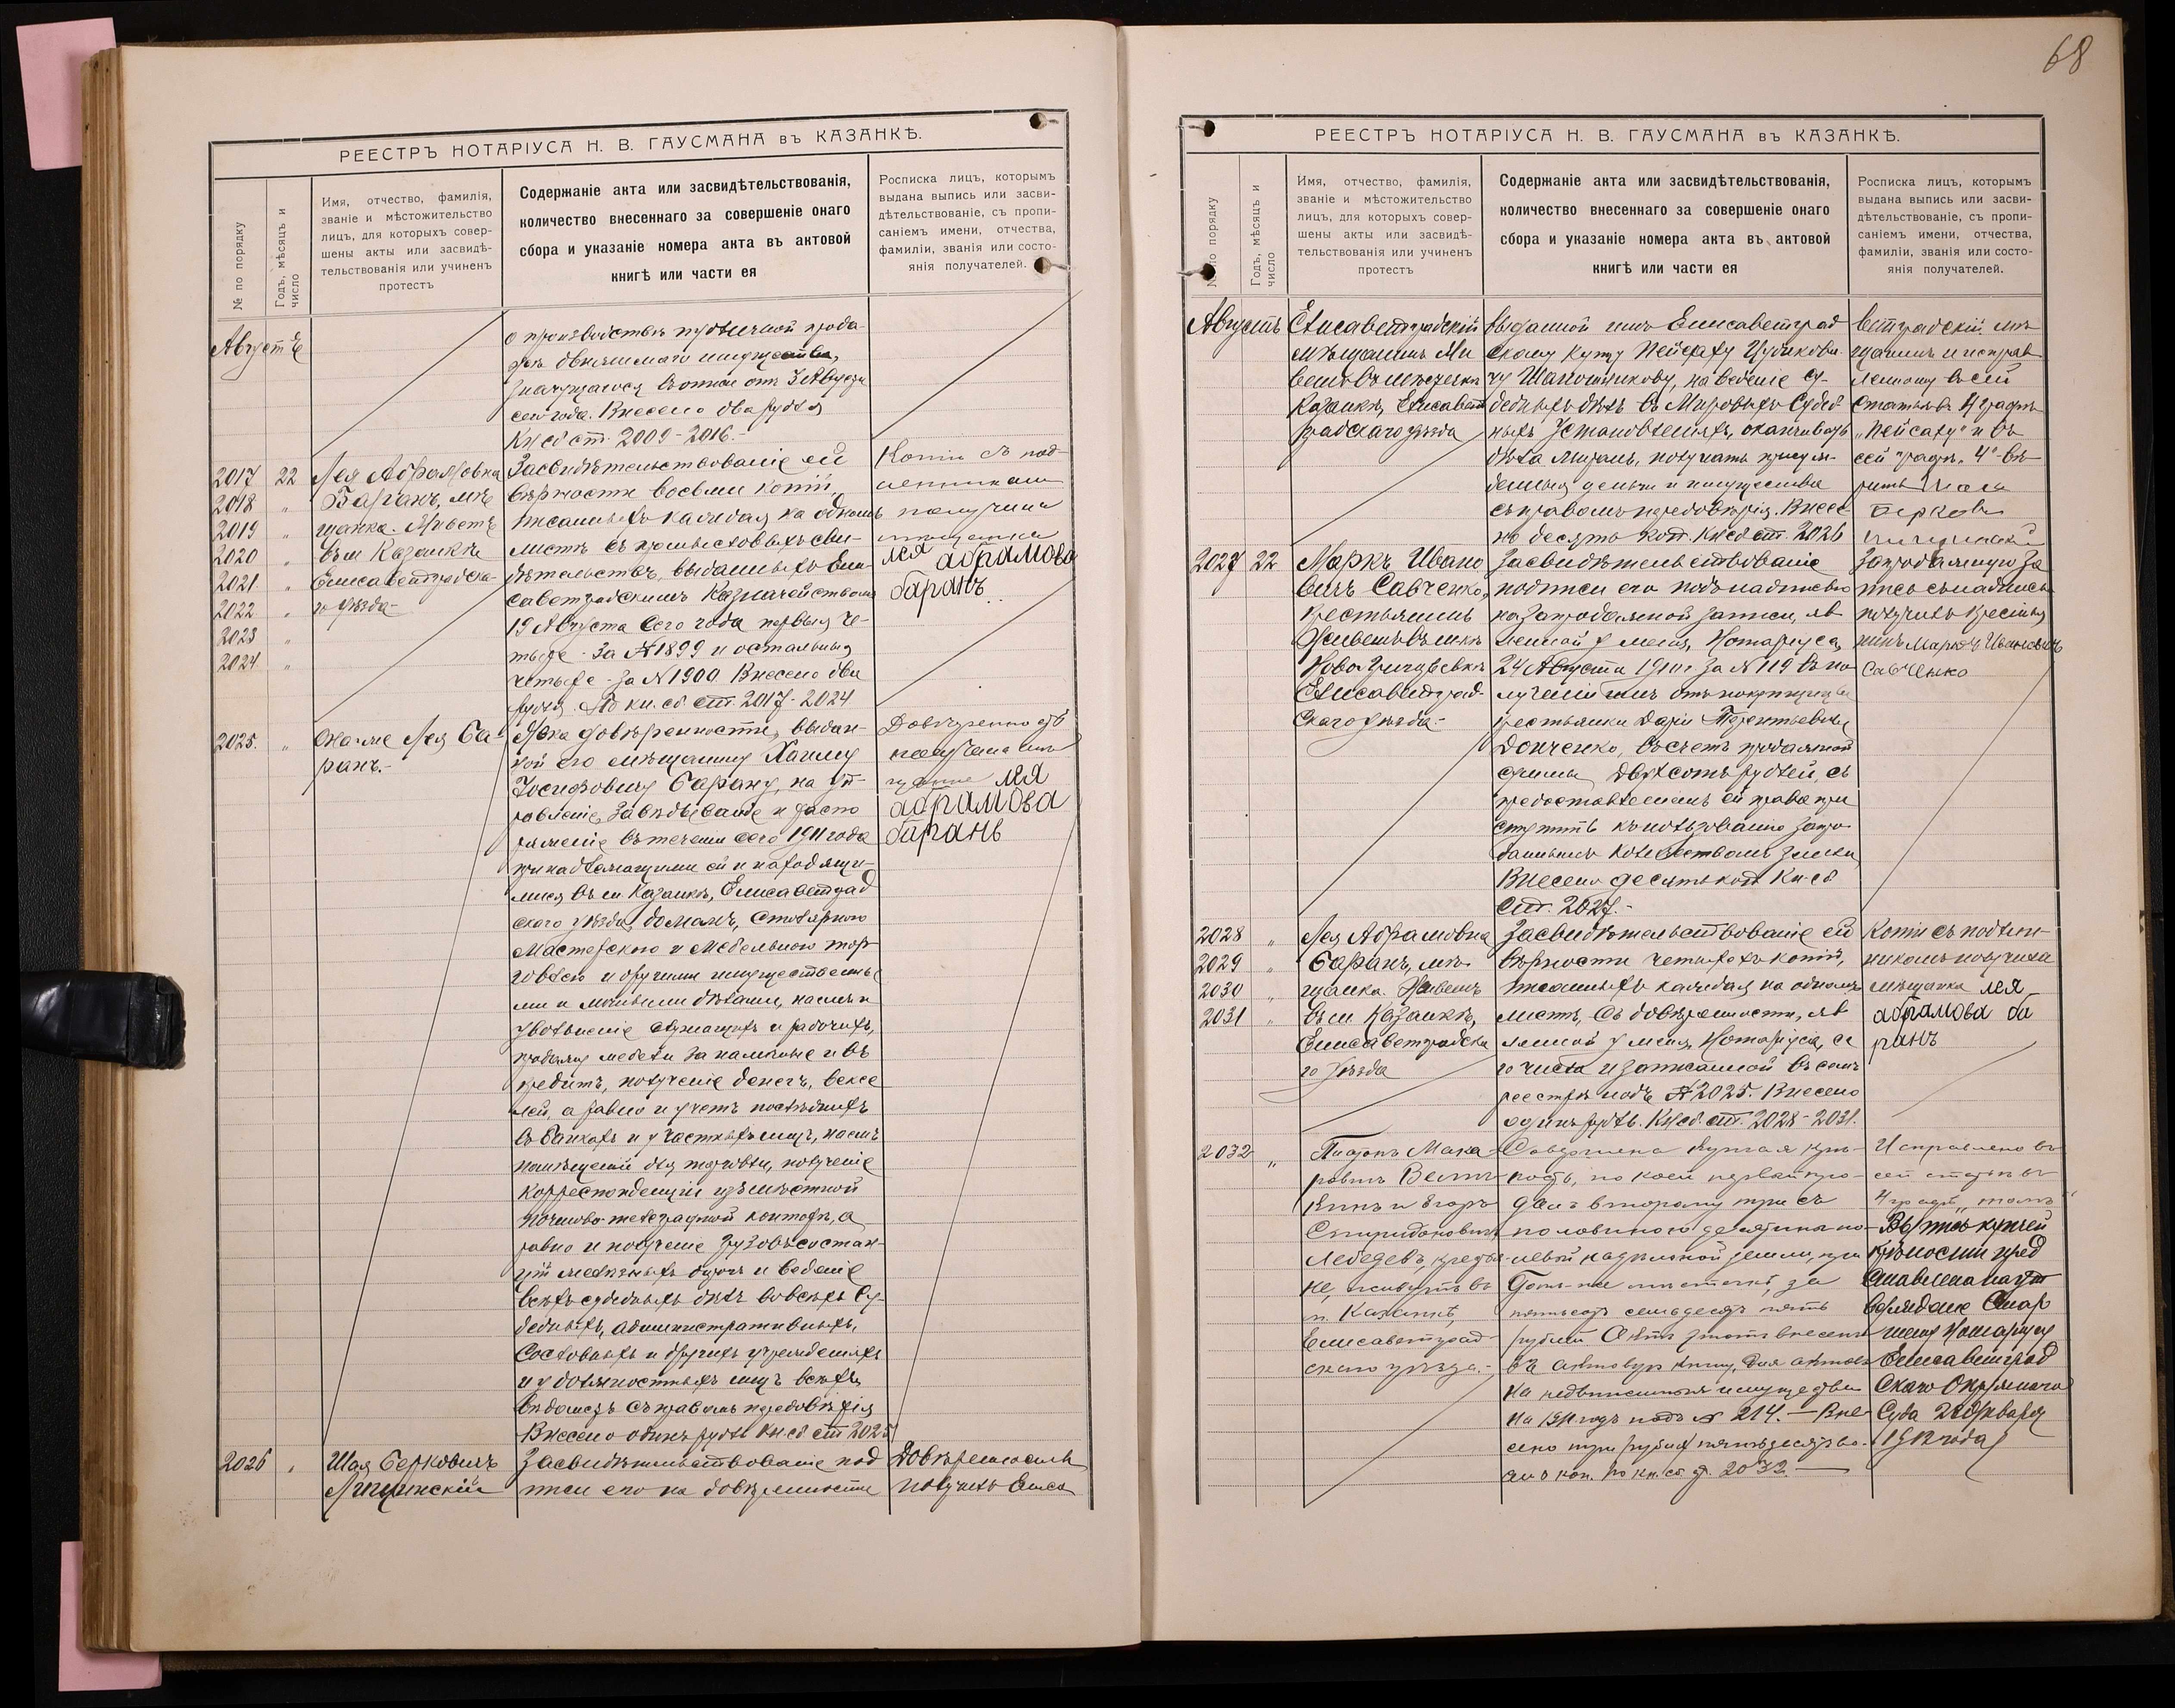 РЕЕСТРЪ НОТАРІУСА Н. В. ГАУСМАНА въ КАЗАНКѢ.
№ по порядку
Годъ, мѣсяцъ и
число
Имя, отчество, фамилія,
званіе и мѣстожительство
лицъ, для которыхъ совер-
шены акты или засвидѣ-
тельствованія или учиненъ
протестъ
Содержаніе акта или засвидѣтельствованія,
количество внесеннаго за совершеніе онаго
сбора и указаніе номера акта въ актовой
книгѣ или части ея
Росписка лицъ, которымъ
выдана выпись или засви-
дѣтельствованіе, съ пропи-
саніемъ имени, отчества,
фамиліи, званія или состо-
янія получателей.
Августъ
о производствѣ публичной прода-
жѣ движимаго имущества,
значущагося въ описи отъ 3 Августа
сего года. Внесено два рубля
Кн сб ст. 2009-2016.-
2017 22
2018 "
2019 "
2020 "
2021. "
2022. "
2023 "
2024 "
Лея Абрамовна
Баранъ, мѣ-
щанка. Живетъ
въ м Казанкѣ
Елисаветградска-
го уѣзда-
Засвидѣтельствованіе ей
вѣрности восьми копій,
писанныхъ каждая на одномъ
листѣ съ промысловыхъ сви-
дѣтельствъ, выданныхъ Ели-
саветградскимъ Казначействомъ
19 Августа сего года первыя че-
тыре - за № 1899 и остальныя
четыре - за № 1900. Внесено два
рубля. По кн. сб. ст. 2017-2024
Копіи съ под-
линниками
получила
мѣщанка
лея абрамова
баранъ
2025. "
Она же Лея Ба-
ранъ.-
Явка довѣренности, выдан-
ной его мѣщанину Хаиму
Іосифовичу Барану, на уп-
равленіе, завѣдываніе и распо
ряженіе въ теченіи сего 1911 года
принадлежащими ей и находящи-
мися въ м Казанкѣ, Елисаветград
скаго уѣзда, домомъ, столярною
мастерскою и мебельною тор-
говлею и другими имущественны
ми и личными дѣлами, наемъ и
увольненіе служащихъ и рабочихъ,
продажу мебели за наличные и въ
кредитъ, полученіе денегъ, вексе
лей, а равно и учетъ послѣднихъ
въ банкахъ и у частныхъ лицъ, наемъ
помѣщеній для торговли, полученіе
корреспонденціи изъ мѣстной
почтово-телеграфной конторы, а
равно и полученіе грузовъ со стан-
цій желѣзныхъ дорогъ и веденіе
всѣхъ судебныхъ дѣлъ во всѣхъ Су-
дебныхъ, административныхъ,
Сословныхъ и другихъ учрежденіяхъ
и у должностныхъ лицъ всѣхъ
вѣдомствъ съ правомъ передовѣрія
Внесено одинъ рубль Кн сб ст 2025
Довѣренность
получила мѣ-
щанка лея
абрамова
барань
2026 "
Шая Берковичъ
Засвидѣтельствованіе под
писи его на довѣренности
Довѣренность
получилъ Елиса
68
РЕЕСТРЪ НОТАРІУСА Н. В. ГАУСМАНА въ КАЗАНКѢ.
№ по порядку
Годъ, мѣсяцъ и
число
Имя, отчество, фамилія,
званіе и мѣстожительство
лицъ, для которыхъ совер-
шены акты или засвидѣ-
тельствованія или учиненъ
протестъ
Содержаніе акта или засвидѣтельствованія,
количество внесеннаго за совершеніе онаго
сбора и указаніе номера акта въ актовой
книгѣ или части ея
Росписка лицъ, которымъ
выдана выпись или засви-
дѣтельствованіе, съ пропи-
саніемъ имени, отчества,
фамиліи, званія или состо-
янія получателей.
Августъ
Елисаветградскій
мѣщанинъ. Жи
ветъ въ мѣстечкѣ
Казанкѣ, Елисавет
градскаго уѣзда
выданной имъ Елисаветград
скому купцу Пейсаху
Шапошникову, на веденіе су-
дебныхъ дѣлъ въ Мировыхъ Судеб
ныхъ Установленіяхъ, оканчивать
дѣла миромъ, получать присуж-
денныя деньги и имущества
съ правомъ передовѣрія. Внесе
но десять коп. Кн сб ст. 2026
ветградскій мѣ
щанинъ и исправ
ленному въ сей
Статьѣ въ 4 графѣ
„Пейсаху" и въ
сей графѣ „4" вѣ-
рить Шая
Беркови
2027 22
Маркъ Ивано
вичъ Савченко,
крестьянинъ
Живетъ въ дер.
Ново Григорьевкѣ
Елисаветград-
скаго уѣзда.-
Засвидѣтельствованіе
подписи его подъ надписью
на запродажной записи, яв
ленной у меня, Нотаріуса,
24 Августа 1910 г за № 119 въ по
лученіи имъ отъ покупщицы
крестьянки Даріи Терентьевны
Донченко, въ счетъ продажной
суммы двѣсти рублей, съ
предоставленіемъ ей права при
ступить къ пользованію запро-
даннымъ количествомъ земли
Внесено десять коп Кн сб
Ст. 2027.-
Запродажную за
пись съ надписью
получилъ крестья
нинъ Маркъ Ивановичъ
Савченко
2028 "
2029 "
2030 "
2031 "
Лея Абрамовна
Баранъ, мѣ-
щанка. Живетъ
въ м Казанкѣ,
Елисаветградска
го уѣзда
Засвидѣтельствованіе ей
вѣрности четырехъ копій,
писанныхъ каждая на одномъ
листѣ, съ довѣренности, яв
ленной у меня, Нотаріуса, се
го числа и записанной въ семъ
реестрѣ подъ № 2025. Внесено
одинъ рубль. Кн сб. ст. 2028-2031.
Копіи съ подлин-
никомъ получила
мѣщанка лея
абрамова ба
ранъ
2032 "
Мака-
ровичъ
и Егоръ
Спиридоновичъ
Лебедевъ, крестья-
не, живутъ въ
м. Казанкѣ,
Елисаветград-
скаго уѣзда.-
Совершена Купчая крѣ-
пость, по коей первый про-
далъ второму три съ
половиною десятины по-
левой надѣльной земли, при
томъ же мѣстечкѣ, за
пятьсотъ семьдесятъ пять
рублей Актъ этотъ внесенъ
въ актовую книгу для актовъ
на недвижимыя имущества
на 1911 годъ подъ № 214. — Вне-
сено три рубля пятьдесятъ во-
семь коп. По кн. сб. ст. 2032 —
Исправлено въ
сей статьѣ въ
4 графѣ „томъ"
Выпись купчей
крѣпости пред
ставлена на ут
вержденіе Стар
шему Нотаріусу
Елисаветград
скаго Окружнаго
Суда Января
1912 года